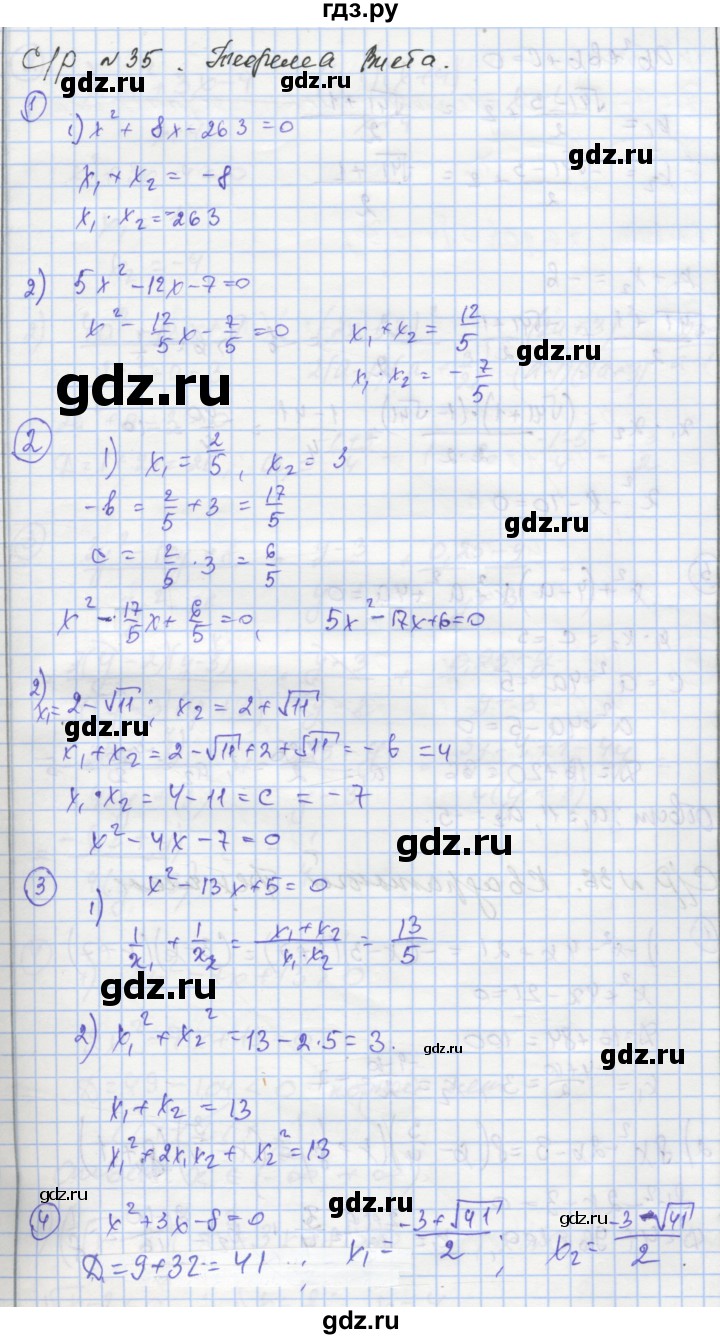 гдз.ру
С/р №35. Теорема Виета.
gdz.ru
1
1) x² + 8x - 263 = 0
gdz.ru
x₁ + x₂ = -8
x₁ · x₂ = -263
2) 5x² - 12x - 7 = 0
x² - 12/5 x - 7/5 = 0 x₁ + x₂ = 12/5
gdz.ru
x₁ · x₂ = - 7/5
gdz.ru
2
1) x₁ = 2/5, x₂ = 3
-b = 2/5 + 3 = 17/5
gdz.ru
c = 2/5 · 3 = 6/5
x² - 17/5 x + 6/5 = 0, 5x² - 17x + 6 = 0
2)
x₁ = 2 - √11; x₂ = 2 + √11
gdz.ru
x₁ + x₂ = 2 - √11 + 2 + √11 = -b = 4
x₁ · x₂ = 4 - 11 = c = -7
x² - 4x - 7 = 0
gdz.ru
3 x² - 13x + 5 = 0
1)
1/x₁ + 1/x₂ = x₁ + x₂ / x₁ · x₂ = 13/5
gdz.ru
2) x₁² + x₂² = 13 - 2 · 5 = 3.
gdz.ru
gdz.ru
x₁ + x₂ = 13
x₁² + 2x₁x₂ + x₂² = 13
gdz.ru
gdz.ru
4 x² + 3x - 8 = 0
gdz.ru
D = 9 + 32 = 41; x₁ = -3 + √41 / 2; x₂ = -3 - √41 / 2.
gdz.ru